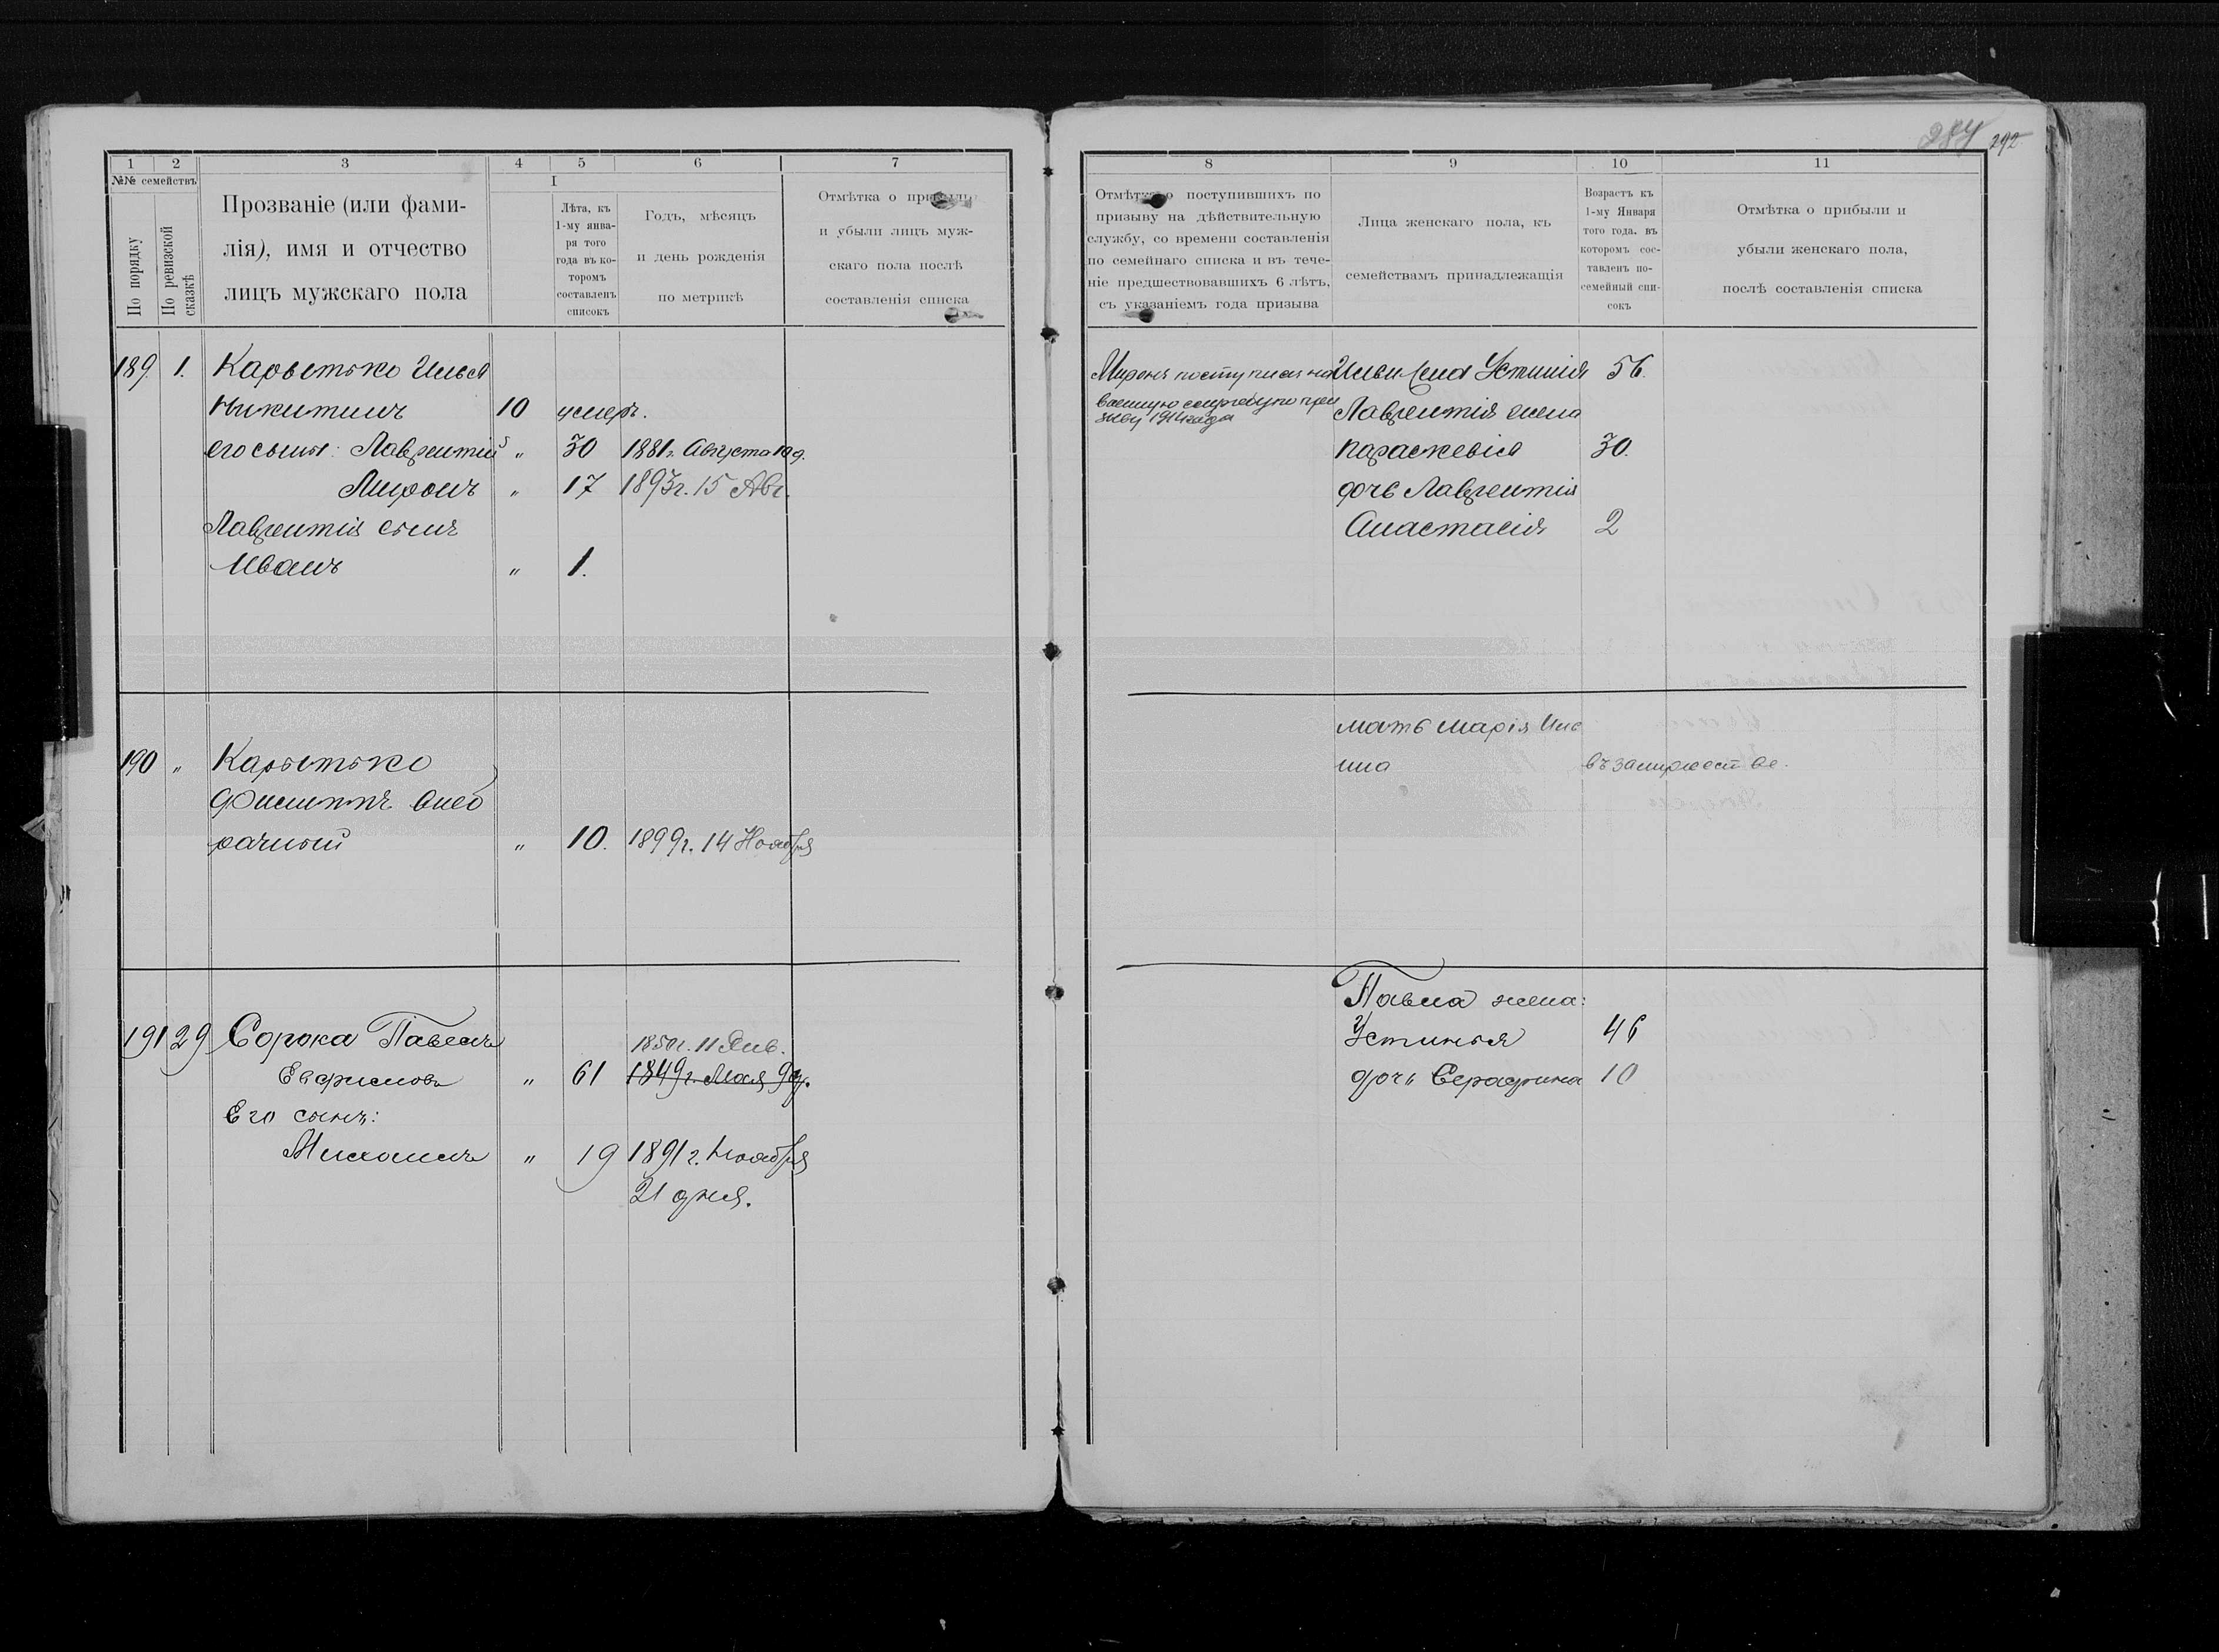 284 292
1 2 3 4 5 6 7
№№ семействъ
По порядку
По ревизской сказкѣ
Прозваніе (или фами-
лія), имя и отчество
лицъ мужскаго пола
I
Лѣта, къ
1-му янва-
ря того
года въ ко-
торомъ
составленъ
списокъ
Годъ, мѣсяцъ
и день рожденія
по метрикѣ
Отмѣтка о прибыли
и убыли лицъ муж-
скаго пола послѣ
составленія списка
189. 1. Карытько Илья
Никитинъ 10 умеръ.
его сыны: Лаврентій " 30 1881г. Августа 10 д.
Миронъ " 17 1893г. 15 Авг.
Лаврентія сынъ
Иванъ " 1.
190 " Карытько
Филиппъ внеб
рачный " 10. 1899г. 14 Ноября
191 29 Сорока Павелъ 1850г. 11 Янв.
Евфимовъ " 61 1849г. Мая 9 д.
Его сынъ:
Михаилъ " 19 1891 г. Ноября
21 дня.
8 9 10 11
Отмѣтка о поступившихъ по
призыву на дѣйствительную
службу, со времени составленія
по семейнаго списка и въ тече-
ніе предшествовавшихъ 6 лѣтъ,
съ указаніемъ года призыва
Лица женскаго пола, къ
семействамъ принадлежащія
Возрастъ къ
1-му Января
того года. въ
которомъ сос-
тавленъ по-
семейный спи-
сокъ
Отмѣтка о прибыли и
убыли женскаго пола,
послѣ составленія списка
Миронъ поступилъ на
военную службу по при
зыву 1914 года
Ильи жена Устинія 56.
Лаврентія жена
Параскевія 30.
дочь Лаврентія
Анастасія 2
мать Марія Иль
ина въ замужестве.
Павла жена:
Устинья 46
дочь Серафима 10